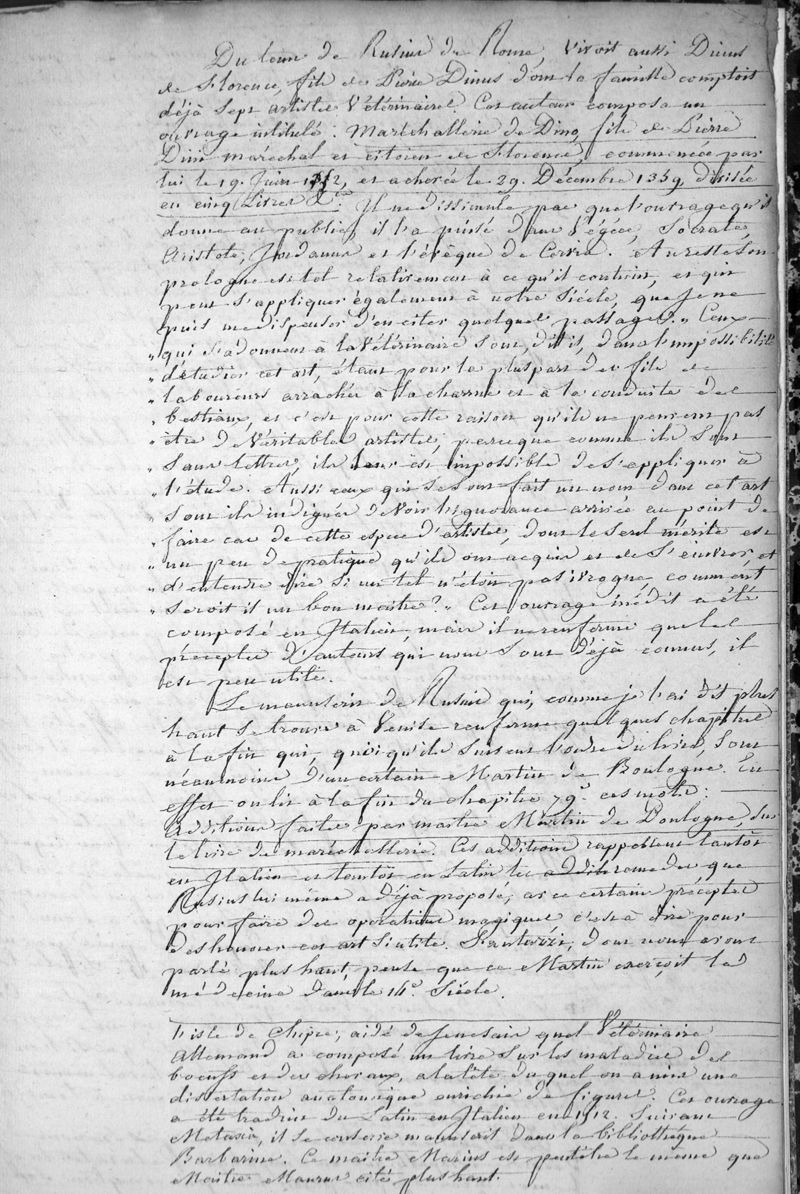 Du tems de Rusius de Rome, vivoit aussi Dinus
de Florence, fils de Pierre Dinus dont la famille comptoit
déjà sept artistes Vétérinaires. Cet auteur composa un
ouvrage intitulé: Maréchallerie de Dino, fils de Pierre
Dini maréchal et citoien de Florence, commencée par
lui le 19. Juin, et achevée le 29. Décembre 1359, divisée
en cinq Livres &c. Il ne dissimule pas que l'ouvrage qu'il
donne au public, il l'a puisé dans Végéce, Socrate,
Aristote, Jordanus et l'évêque de Cervia. Au reste son
prologue est tel relativement à ce qu'il contient, et qui
peut s'appliquer également à notre Siécle, que je ne
puis me dispenser d'en citer quelques passages. „ Ceux
„ qui s'adonnent à la Vétérinaire sont, dit il, dans l'impossibilité
„ d'étudier cet art, étant pour la pluspart des fils de
„ laboureurs arrachés à la charrue et à la conduite des
„ bestiaux, et c'est pour cette raison qu'ils ne peuvent pas
„ être de véritables artistes, parceque comme ils sont
„ sans lettres, ils leur est impossible de s'appliquer à
„ l'étude. Aussi ceux qui se sont fait un nom dans cet art
„ sont ils indignés de voir l'ignorance arrivée au point de
„ faire cas de cette espece d'artistes, dont le seul mérite est
„ un peu de pratique qu'ils ont acquis et de s'enivrer, et
„ d'entendre dire si un tel n'étoit pas ivrogne, comment
„ seroit il un bon maitre? „ Cet ouvrage inédit a été
composé en Italien, mais il ne renferme que les
préceptes d'auteurs qui nous sont déjà connus, il
est peu utile.
Le manuscrit de Rusius qui, comme je l'ai dit plus
haut se trouve à Venise renferme quelques chapitres
à la fin qui, quoiqu'ils suivent l'ordre du livre, sont
néanmoins d'un certain Martin de Boulogne. En
effet on lit à la fin du chapitre 79.e ces mots:
additions faites par maitre Martin de Boulogne, au
livre de maréchallerie. Ces additions rappellent tantôt
en Italien et tantôt en Latin les remedes que
Rusius lui même a déjà proposé, avec certains préceptes
pour faire des operations magiques c'est à dire pour
deshonorer cet art si utile. Fantuzzi, dont nous avons
parlé plus haut, pense que ce Martin exerçoit la
médecine dans le 14.e Siécle.
l'isle de Chipre, aidé de je ne sais quel Vétérinaire
Allemand a composé un livre sur les maladies des
boeufs et des chevaux, a la tête du quel on a mis une
dissertation anatomique enrichie de figures. Cet ouvrage
a été traduit du Latin en Italien en 1512. Suivant
Metaxa, il se conserve manuscrit dans la bibliothéque
Barbarine. Ce maitre Marius est peutêtre le même que
Maitre Maurus cité plus haut.